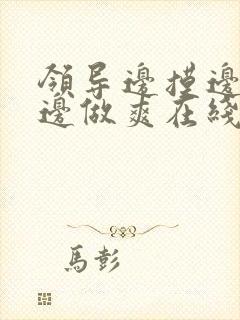 領导邊摸邊
邊做爽在綫
馬彭